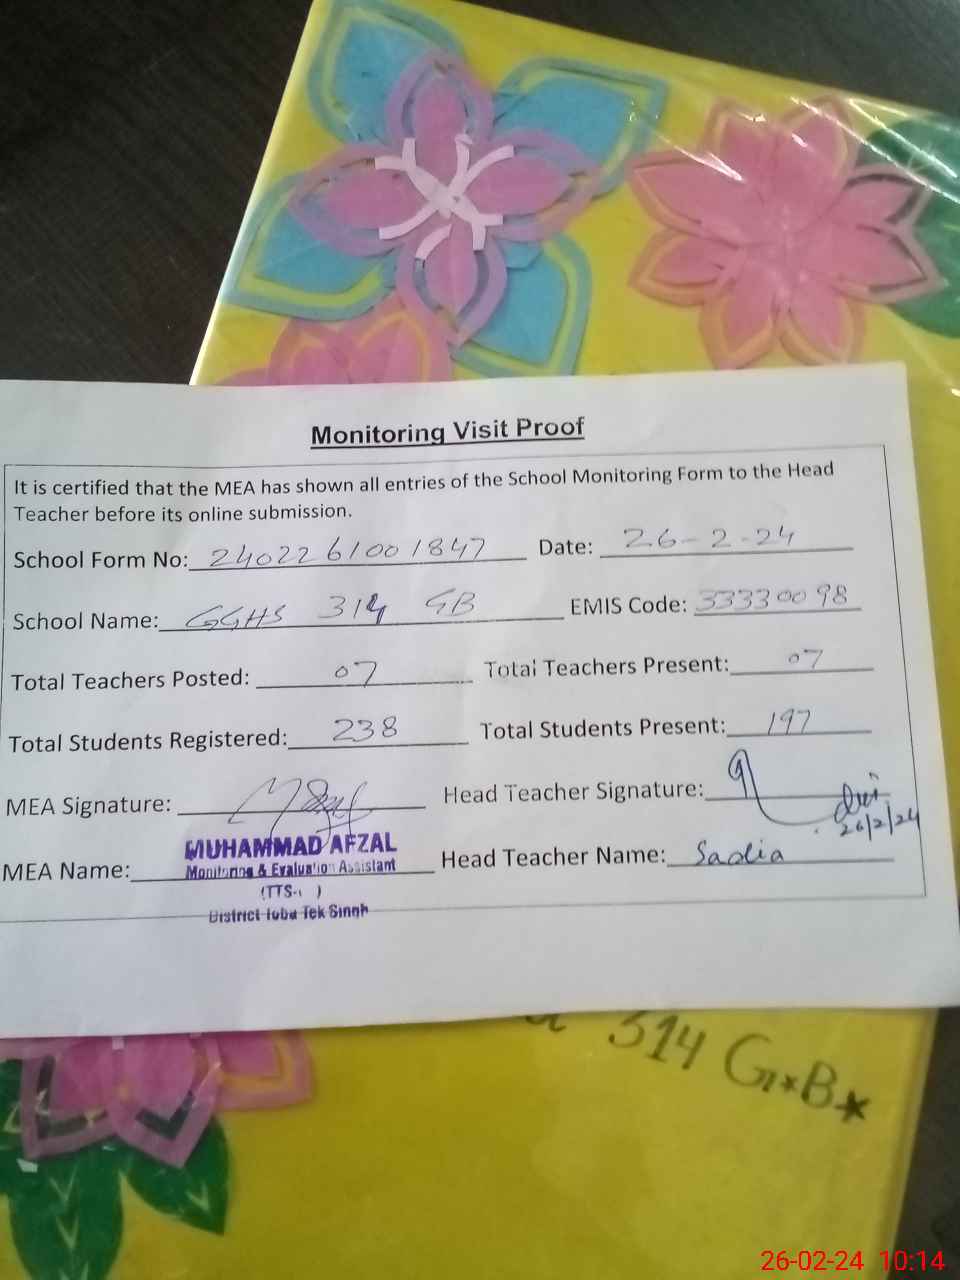 Monitoring Visit Proof
It is certified that the MEA has shown all entries of the School Monitoring Form to the Head
Teacher before its online submission.
School Form No: 2402261001847 Date: 26-2-24
School Name: GGHS 314 GB EMIS Code: 33330098
Total Teachers Posted: 07 Total Teachers Present: 07
Total Students Registered: 238 Total Students Present: 197
MEA Signature: Head Teacher Signature:
26/2/24
MEA Name: MUHAMMAD AFZAL Head Teacher Name: Sadia
Monitoring & Evaluation Assistant
(TTS- )
District Toba Tek Singh
314 G*B*
26-02-24 10:14